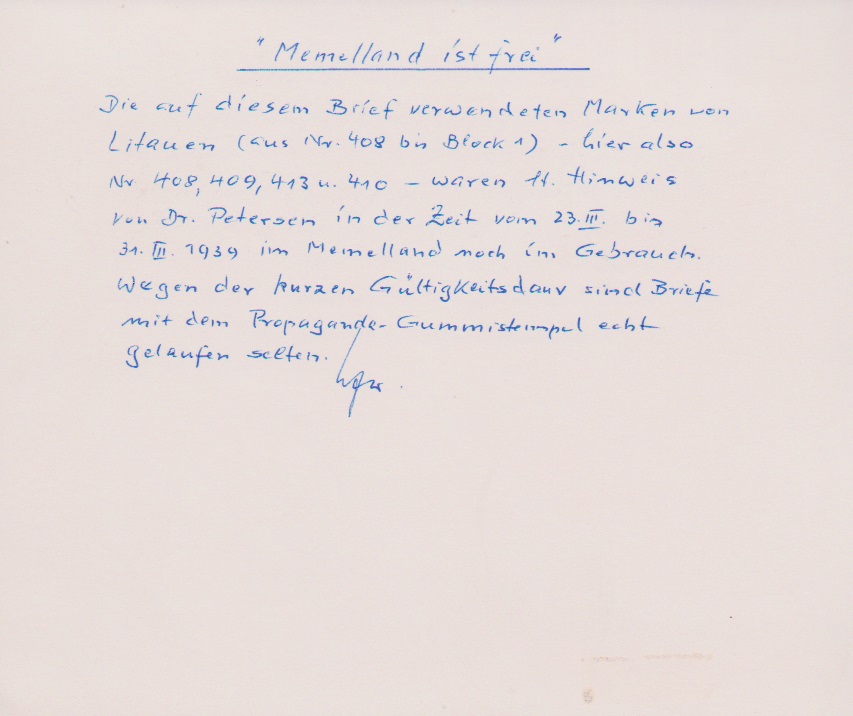 "Memelland ist frei"
Die auf diesem Brief verwendeten Marken von
Litauen (aus Nr. 408 bis Block 1) - hier also
Nr. 408, 409, 413 u. 410 - waren lt. Hinweis
von Dr. Petersen in der Zeit vom 23. III. bis
31. III. 1939 im Memelland noch im Gebrauch.
Wegen der kurzen Gültigkeitsdaur sind Briefe
mit dem Propaganda-Gummistempel echt
gelaufen selten.